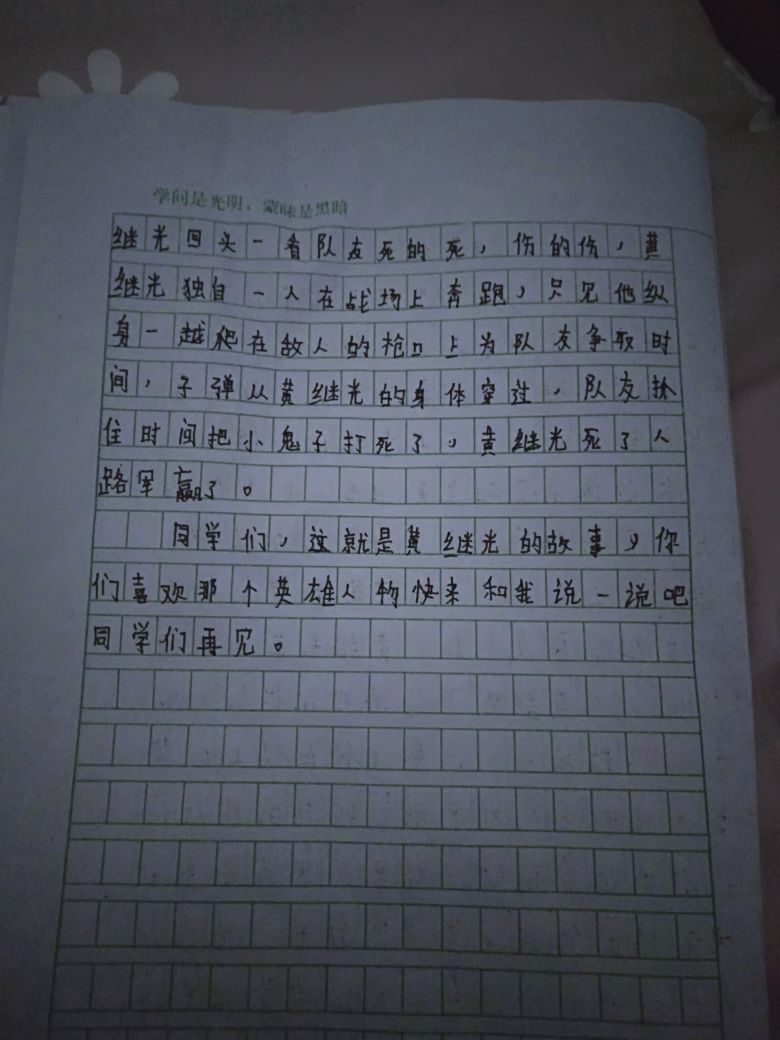 学问是光明，蒙昧是黑暗
继光回头一看队友死的死，伤的伤，黄
继光独自一人在战场上奔跑，只见他纵
身一越爬在敌人的枪口上为队友争取时
间，子弹从黄继光的身体穿过，队友抓
住时间把小鬼子打死了，黄继光死了人
路军赢了。
同学们，这就是黄继光的故事，你
们喜欢那个英雄人物快来和我说一说吧
同学们再见。